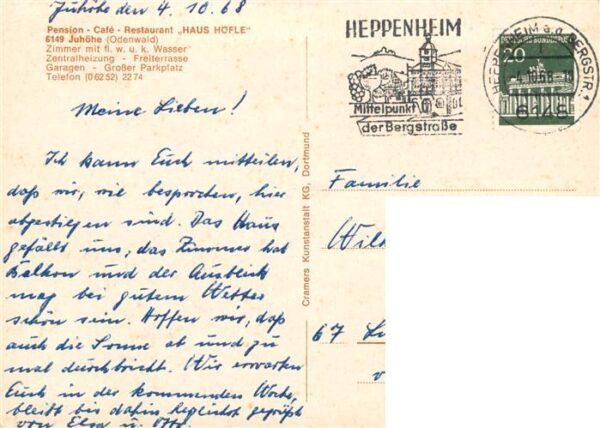 Juhöhe den 4.10.68
Pension - Café - Restaurant „HAUS HÖFLE"
6149 Juhöhe (Odenwald)
Zimmer mit fl. w. u. k. Wasser
Zentralheizung - Freiterrasse
Garagen - Großer Parkplatz
Telefon (06252) 2274
Meine Lieben!
Ich kann Euch mitteilen,
daß wir, wie besprochen, hier
abgestiegen sind. Das Haus
gefällt uns, das Zimmer hat
Balkon und der Ausblick
mag bei gutem Wetter
schön sein. Hoffen wir, daß
auch die Sonne ab und zu
mal durchbricht. Wir erwarten
Euch in der kommenden Woche,
bleibt bis dahin herzlichst gegrüßt
von Elsa u. Otto.
Cramers Kunstanstalt KG, Dortmund
HEPPENHEIM
Mittelpunkt
der Bergstraße
HEPPENHEIM a.d. BERGSTR
4.10.68
6148
DEUTSCHE BUNDESPOST
20
Familie
67